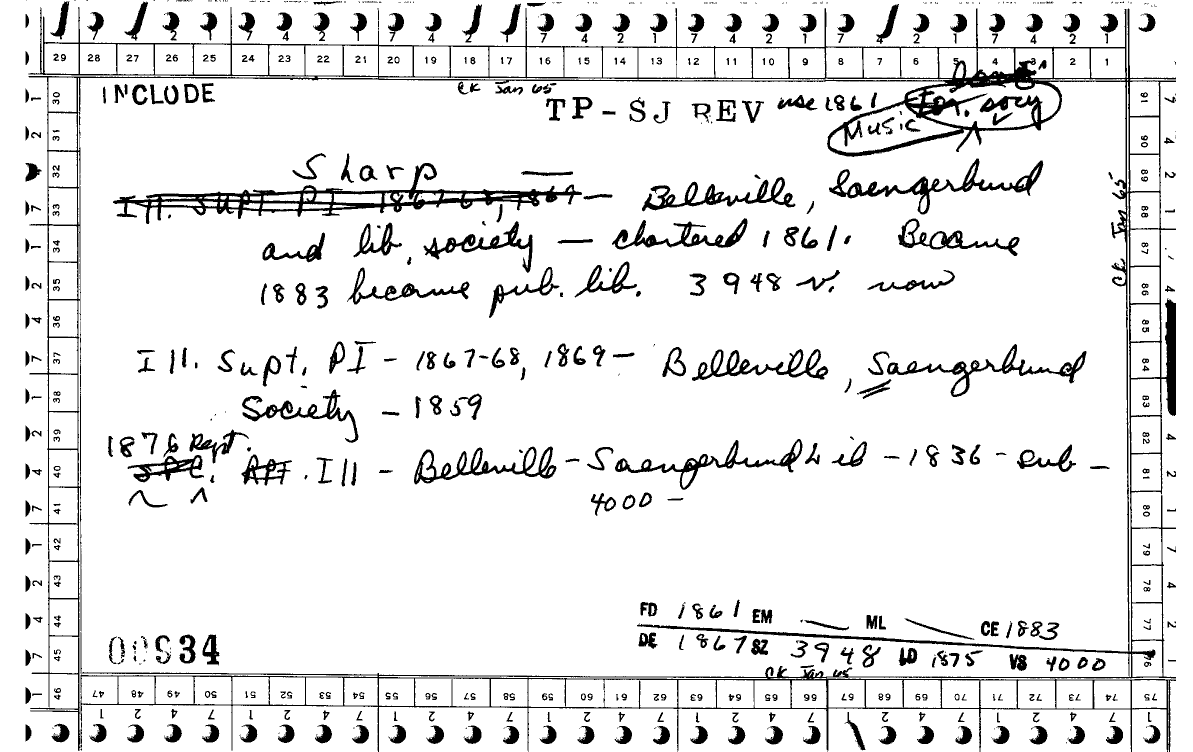 7 4 2 1 7 4 2 1 7 4 2 1 7 4 2 1 7 4 2 1 7 4 2 1 7 4 2 1
29 28 27 26 25 24 23 22 21 20 19 18 17 16 15 14 13 12 11 10 9 8 7 6 5 4 3 2 1
INCLUDE
CK Jan 65
TP-SJ REV use 1861 For. socy
Music
Sharp
Ill. Supt. PI 1867-68, 1869 — Belleville, Saengerbund
and lib. society — chartered 1861. Became
1883 became pub. lib. 3948 v. now
Ill. Supt. PI - 1867-68, 1869 — Belleville, Saengerbund
Society - 1859
1876 Rept.
Ill - Belleville - Saengerbund Lib - 1836 - sub -
4000 -
FD 1861 EM — ML — CE 1883
DE 1867 SZ 3948 LD 1875 VS 4000
CK Jan 65
00934
30 31 32 33 34 35 36 37 38 39 40 41 42 43 44 45 46
91 90 89 88 87 86 85 84 83 82 81 80 79 78 77 76
47 48 49 50 51 52 53 54 55 56 57 58 59 60 61 62 63 64 65 66 67 68 69 70 71 72 73 74 75
1 2 4 7 1 2 4 7 1 2 4 7 1 2 4 7 1 2 4 7 1 2 4 7 1 2 4 7 1